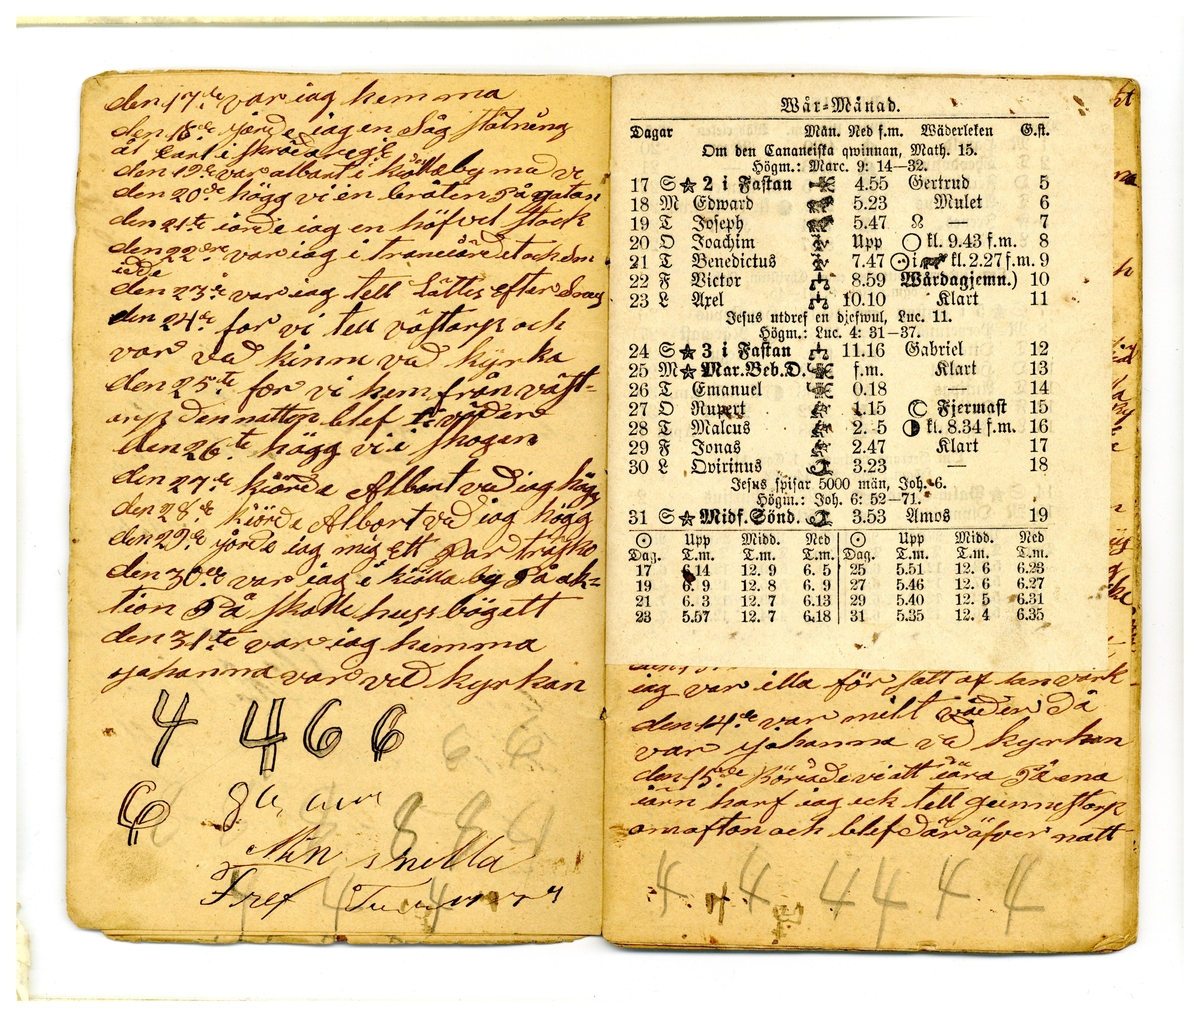 den 17de var iag hemma
den 18de jorde iag en Såg stälning
åt Carl i
den 19de var albart i by må vi
den 20de högg vi en bråten På gatan
den 21te iorde iag en höfvel stock
den 22dre var iag i och
den 23de var iag tell Lättes efter
den 24de for vi tell västorp och
var vid kinna vid kyrka
den 25te for vi hem från väst-
orp den natten blef
den 26te högg vi i skogen
den 27de kiörde Albart ved iag högg
den 28de kiörde Albart ved iag högg
den 29de jorde iag mig ett Par träsko
den 30de var iag i by På ak-
tion På
den 31te var iag hemma
Johanna var ved kyrkan
4 4 6 6
6
Min snella
Wår-Månad.
Dagar Mån. Ned f.m. Wäderleken G.st.
Om den Cananeiska qwinnan, Math. 15.
Högm.: Marc. 9: 14—32.
17 S ☆ 2 i Fastan 4.55 Gertrud 5
18 M Edward 5.23 Mulet 6
19 T Joseph 5.47 ☊ — 7
20 O Joachim Upp ○ kl. 9.43 f.m. 8
21 T Benedictus 7.47 ☉ i kl. 2.27 f.m. 9
22 F Victor 8.59 Wårdagjemn.) 10
23 L Axel 10.10 Klart 11
Jesus utdref en djefwul, Luc. 11.
Högm.: Luc. 4: 31—37.
24 S ☆ 3 i Fastan 11.16 Gabriel 12
25 M ☆ Mar. Beb. D. f.m. Klart 13
26 T Emanuel 0.18 — 14
27 O Rupert 1.15 ☾ Fjermast 15
28 T Malcus 2. 5 ◑ kl. 8.34 f.m. 16
29 F Jonas 2.47 Klart 17
30 L Qvirinus 3.23 — 18
Jesus spisar 5000 män, Joh. 6.
Högm.: Joh. 6: 52—71.
31 S ☆ Midf. Sönd. 3.53 Amos 19
☉ Upp Midd. Ned ☉ Upp Midd. Ned
Dag. T.m. T.m. T.m. Dag. T.m. T.m. T.m.
17 6.14 12. 9 6. 5 25 5.51 12. 6 6.23
19 6. 9 12. 8 6. 9 27 5.46 12. 6 6.27
21 6. 3 12. 7 6.13 29 5.40 12. 5 6.31
23 5.57 12. 7 6.18 31 5.35 12. 4 6.35
iag var illa för satt af tanvärk
den 14de var milt väder Då
var Johanna vid kyrkan
den 15de Böriade vi att iära På ena
iärn harf iag ick tell gunnestorp
om afton och blef Där äfver natt
4 4 4 4 4 4